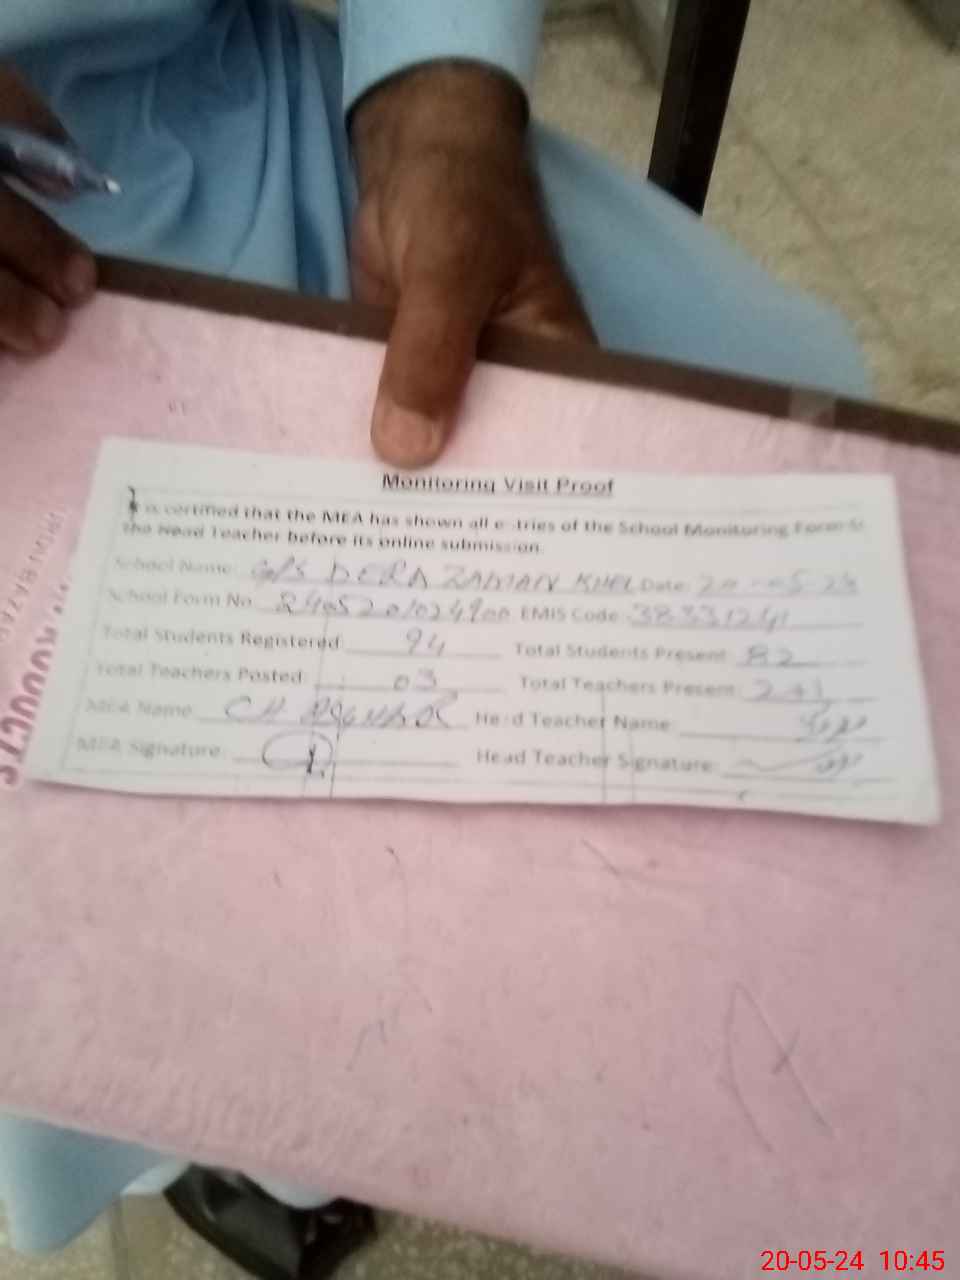 Monitoring Visit Proof
is certified that the MEA has shown all e tries of the School Monitoring Form
the Head Teacher before its online submission.
School Name: G/S DERA ZAMAN KHEL Date: 20-05-24
School Form No. EMIS Code: 38331241
Total Students Registered 94 Total Students Present 82
Total Teachers Posted: 03 Total Teachers Present: 2+1
MEA Name: CH Head Teacher Name:
MEA Signature: Head Teacher Signature:
PRODUCTS
20-05-24 10:45